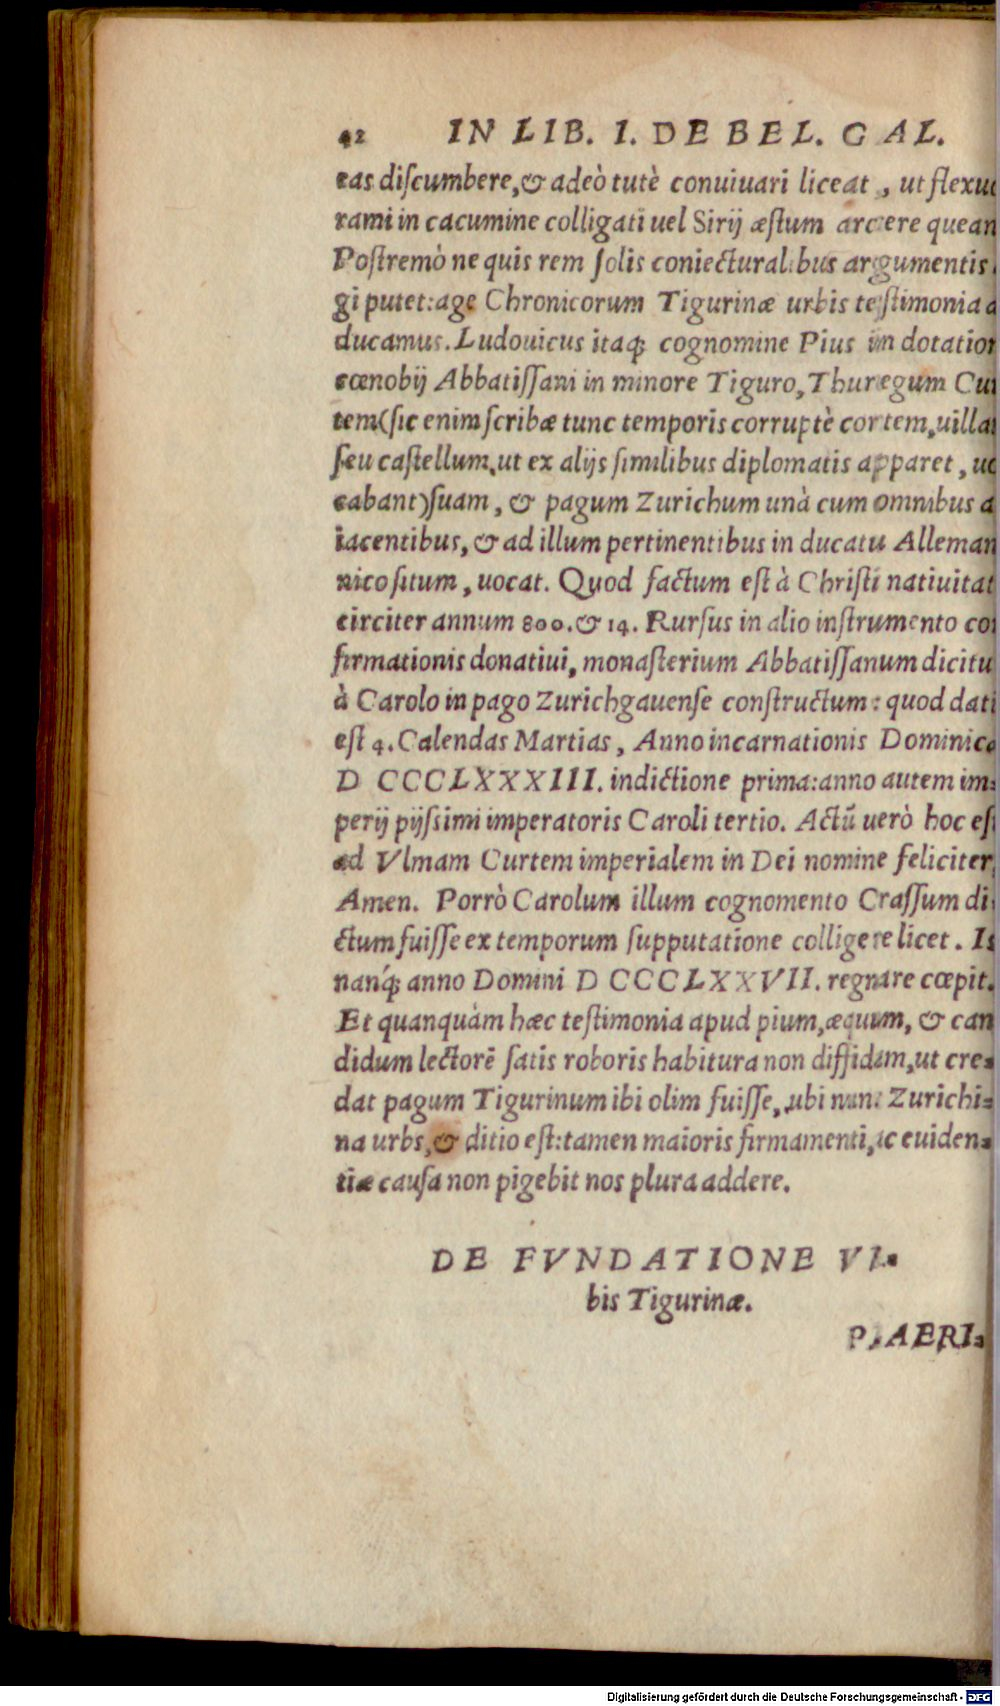 42 IN LIB. I. DE BEL. GAL.
eas diſcumbere, & adeò tutè conuiuari liceat, ut flexu
rami in cacumine colligati uel Sirij æſtum arcere quean
Poſtremò ne quis rem ſolis coniecturalibus argumentis
gi putet: age Chronicorum Tigurinæ urbis teſtimonia a
ducamus. Ludouicus itaq; cognomine Pius in dotation
cœnobij Abbatiſſani in minore Tiguro, Thuregum Cur
tem (ſic enim ſcribæ tunc temporis corruptè cortem, uillam
ſeu caſtellum, ut ex alijs ſimilibus diplomatis apparet, uo
cabant) ſuam, & pagum Zurichum unà cum omnibus a
iacentibus, & ad illum pertinentibus in ducatu Alleman
nico ſitum, uocat. Quod factum eſt à Chriſti natiuitat
circiter annum 800. & 14. Rurſus in alio inſtrumento con
firmationis donatiui, monaſterium Abbatiſſanum dicitu
à Carolo in pago Zurichgauenſe conſtructum: quod dati
eſt 4. Calendas Martias, Anno incarnationis Dominicæ
D CCCLXXXIII. indictione prima: anno autem im-
perij pijſsimi imperatoris Caroli tertio. Actū uerò hoc eſt
ad Vlmam Curtem imperialem in Dei nomine feliciter,
Amen. Porrò Carolum illum cognomento Craſſum di-
ctum fuiſſe ex temporum ſupputatione colligere licet. Is
nanq́; anno Domini D CCCLXXVII. regnare cœpit.
Et quanquàm hæc teſtimonia apud pium, æquum, & can
didum lectorē ſatis roboris habitura non diffidam, ut cre-
dat pagum Tigurinum ibi olim fuiſſe, ubi nunc Zurichi-
na urbs, & ditio eſt: tamen maioris firmamenti, ac euiden-
tiæ cauſa non pigebit nos plura addere.
DE FVNDATIONE VR-
bis Tigurinæ.
P. AERI-
Digitalisierung gefördert durch die Deutsche Forschungsgemeinschaft - DFG